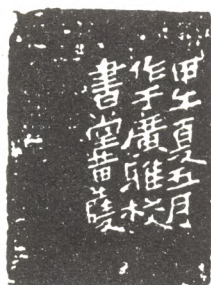 甲午夏五月
作于廣雅校
書堂黄士陵